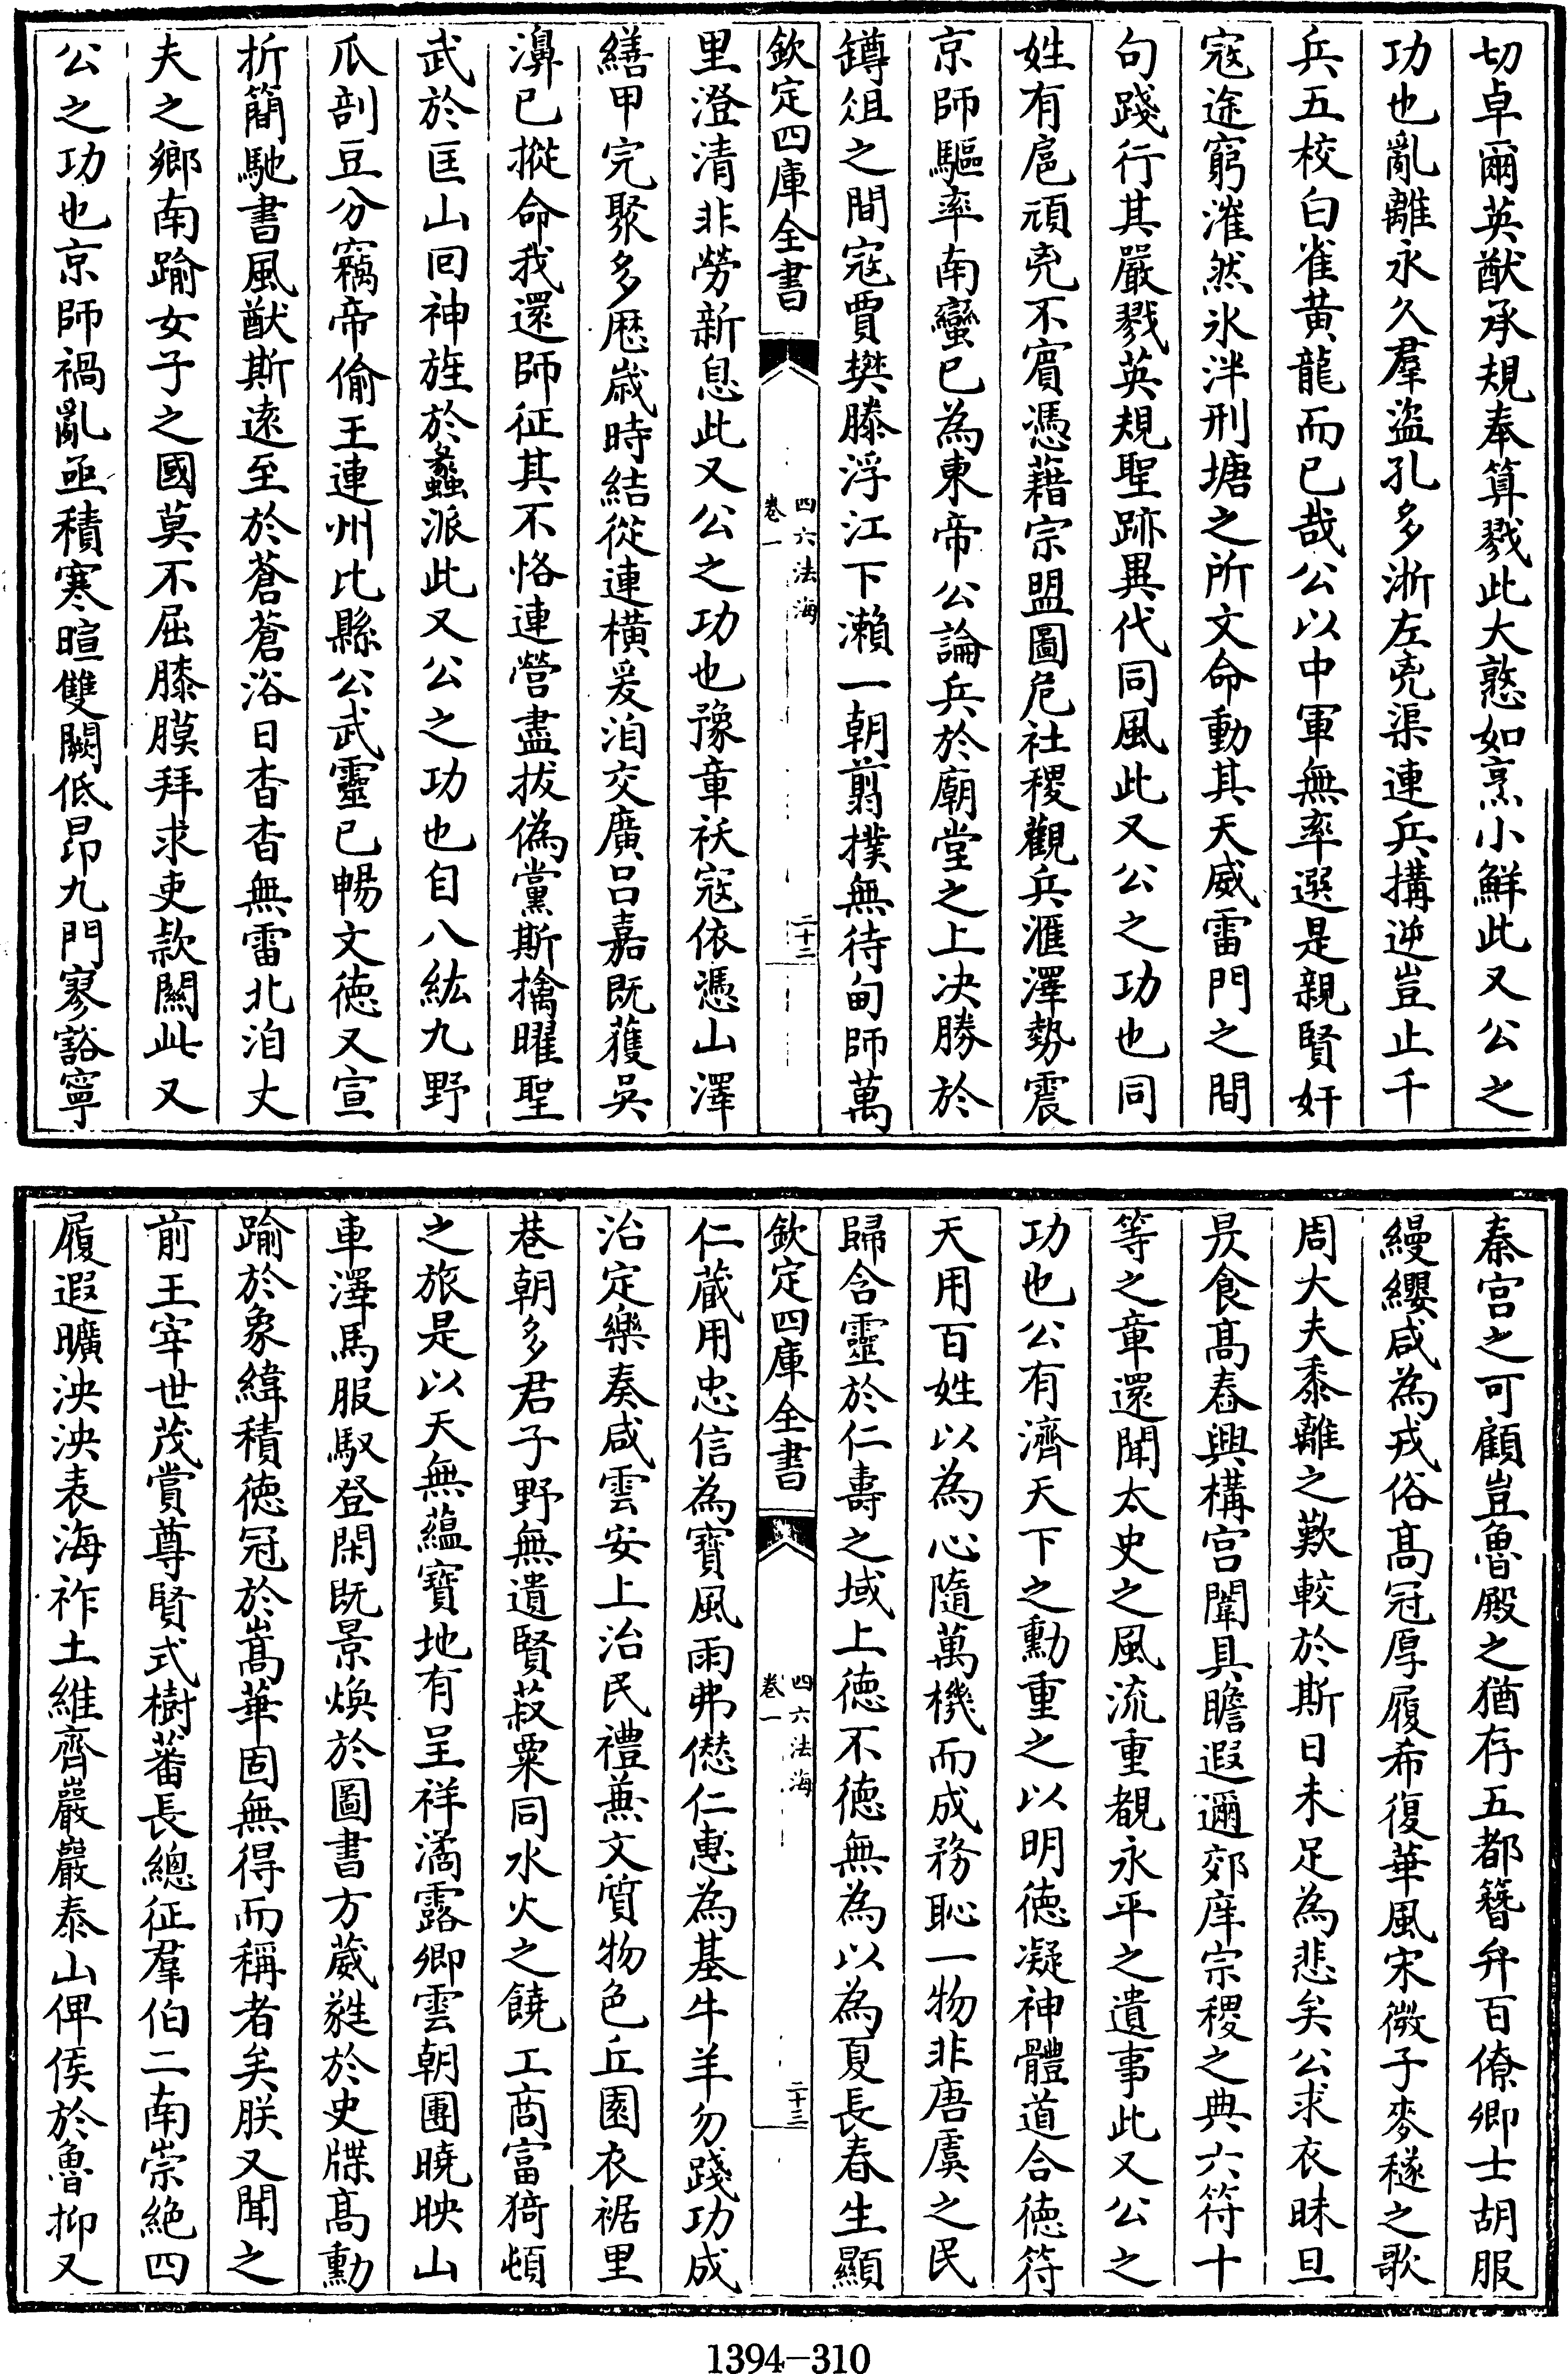 切卓爾英猷承規奉算戮此大憝如烹小鮮此又公之
功也亂離永久羣盗孔多浙左兇渠連兵搆逆豈止千
兵五校白雀黄龍而已哉公以中軍無率選是親賢奸
寇途窮漼然氷泮刑塘之所文命動其天威雷門之間
句踐行其嚴戮英規聖跡異代同風此又公之功也同
姓有扈頑兇不賔憑藉宗盟圖危社稷觀兵滙澤勢震
京師驅率南蠻已為東帝公論兵於廟堂之上决勝於
罇俎之間寇賈樊滕浮江下瀨一朝翦撲無待甸師萬
欽定四庫全書
四六法海
卷一
二十二
里澄清非勞新息此又公之功也豫章袄寇依憑山澤
繕甲完聚多歴歲時結從連橫爰洎交廣吕嘉既獲吳
濞已摐命我還師征其不恪連營盡拔偽黨斯擒曜聖
武於匡山回神旌於蠡派此又公之功也自八紘九野
瓜剖豆分竊帝偷王連州比縣公武靈已暢文徳又宣
折簡馳書風猷斯逺至於蒼蒼浴日杳杳無雷北洎丈
夫之鄉南踰女子之國莫不屈膝膜拜求吏款關此又
公之功也京師禍亂亟積寒暄雙闕低昂九門寥豁寧
秦宫之可顧豈魯殿之猶存五都簪弁百僚卿士胡服
縵纓咸為戎俗髙冠厚履希復華風宋微子麥穟之歌
周大夫黍離之歎較於斯日未足為悲矣公求衣昧旦
昃食髙舂興構宫闈具瞻遐邇郊庠宗稷之典六符十
等之章還聞太史之風流重覩永平之遺事此又公之
功也公有濟天下之勳重之以明徳凝神體道合徳符
天用百姓以為心隨萬機而成務恥一物非唐虞之民
歸含靈於仁壽之域上徳不徳無為以為夏長春生顯
欽定四庫全書
四六法海
卷一
二十三
仁蔵用忠信為寳風雨弗愆仁惠為基牛羊勿踐功成
治定樂奏咸雲安上治民禮兼文質物色丘園衣裾里
巷朝多君子野無遺賢菽粟同水火之饒工商富猗頓
之旅是以天無藴寳地有呈祥潏露卿雲朝團曉映山
車澤馬服馭登閑既景煥於圖書方葳蕤於史牒髙勳
踰於象緯積徳冠於嵩華固無得而稱者矣朕又聞之
前王宰世茂賞尊賢式樹蕃長總征羣伯二南崇絶四
履遐曠泱泱表海祚土維齊巖巖泰山俾侯於魯抑又
1394-310